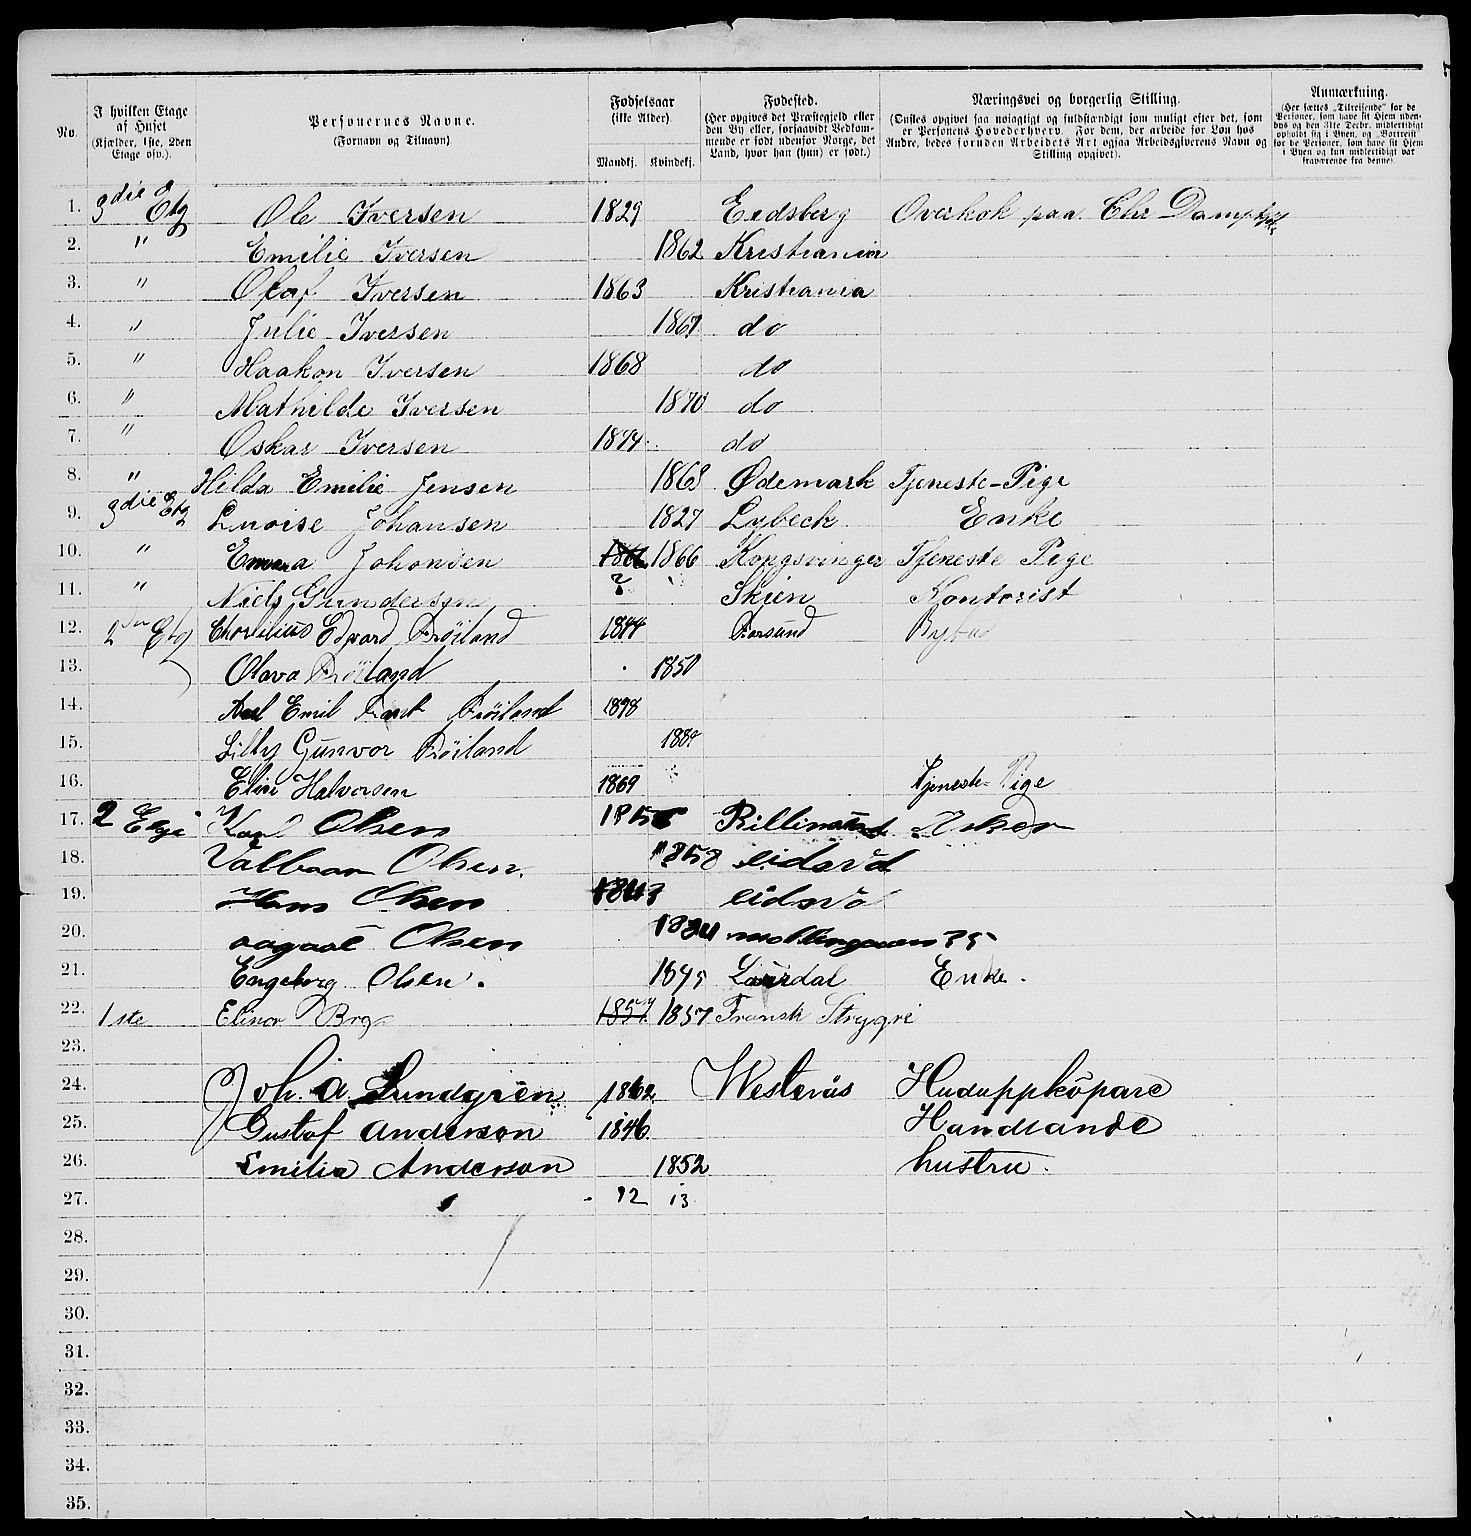 No. I hvilken Etage af Huset (Kjælder, 1ste, 2den Etage osv.). Personernes Navne. (Fornavn og Tilnavn) Fødselsaar (ikke Alder). Mandkj. Kvindekj. Fødested. (Her opgives det Præstegjeld eller den By eller, forsaavidt Vedkommende er født udenfor Norge, det Land, hvor han (hun) er født.) Næringsvei og borgerlig Stilling. (Ønskes opgivet saa nøiagtigt og fuldstændigt som muligt efter det, som er Personens Hovederhverv. For dem, der arbeide for Løn hos Andre, bedes foruden Arbeidets Art ogsaa Arbeidsgiverens Navn og Stilling opgivet). Anmærkning. (Her sættes „Tilreisende" for de Personer, som have sit Hjem udenbys og den 31te Decbr. midlertidigt opholdt sig i Byen, og „Bortreist" for de Personer, som have sit Hjem i Byen og kun midlertidigt var fraværende fra denne).
1. 3die Etg Ole Iversen 1829 Eidsberg Overkok paa Chr
2. " Emilie Iversen 1862 Kristiania
3. " Olaf Iversen 1863 Kristiania
4. " Julie Iversen do
5. " Haakon Iversen 1868 do
6. " Mathilde Iversen 1870 do
7. " Oskar Iversen 1874 do
8. " Hilda Emilie Jensen 1863 Ødemark Tjeneste-Pige
9. 3die Etg Lovise Johansen 1827 Lybeck Enke
10. " Johansen 1866 Kongsvinger Tjeneste Pige
11. " Niels Gundersen ? Skien Kontorist
12. 2 Etg Edvard Frøiland 1844 Farsund
13. Olava Frøiland 1850
14. Emil Frøiland
15. Lilly Gunvor Frøiland
16. Halvorsen 1869 Tjeneste-Pige
17. 2 Etg Karl Olsen
18. Olsen 1858
19. Hans Olsen
20. Olsen
21. Engeborg Olsen. Enke.
22. 1ste Elinor 1857 1857
23.
24. Joh. A. Lundgren 1862 Westerås Huduppköpare
25. Gustaf Anderson 1846 Handlande
26. Emilia Anderson 1852 hustru.
27. 12 13
28.
29.
30.
31.
32.
33.
34.
35.